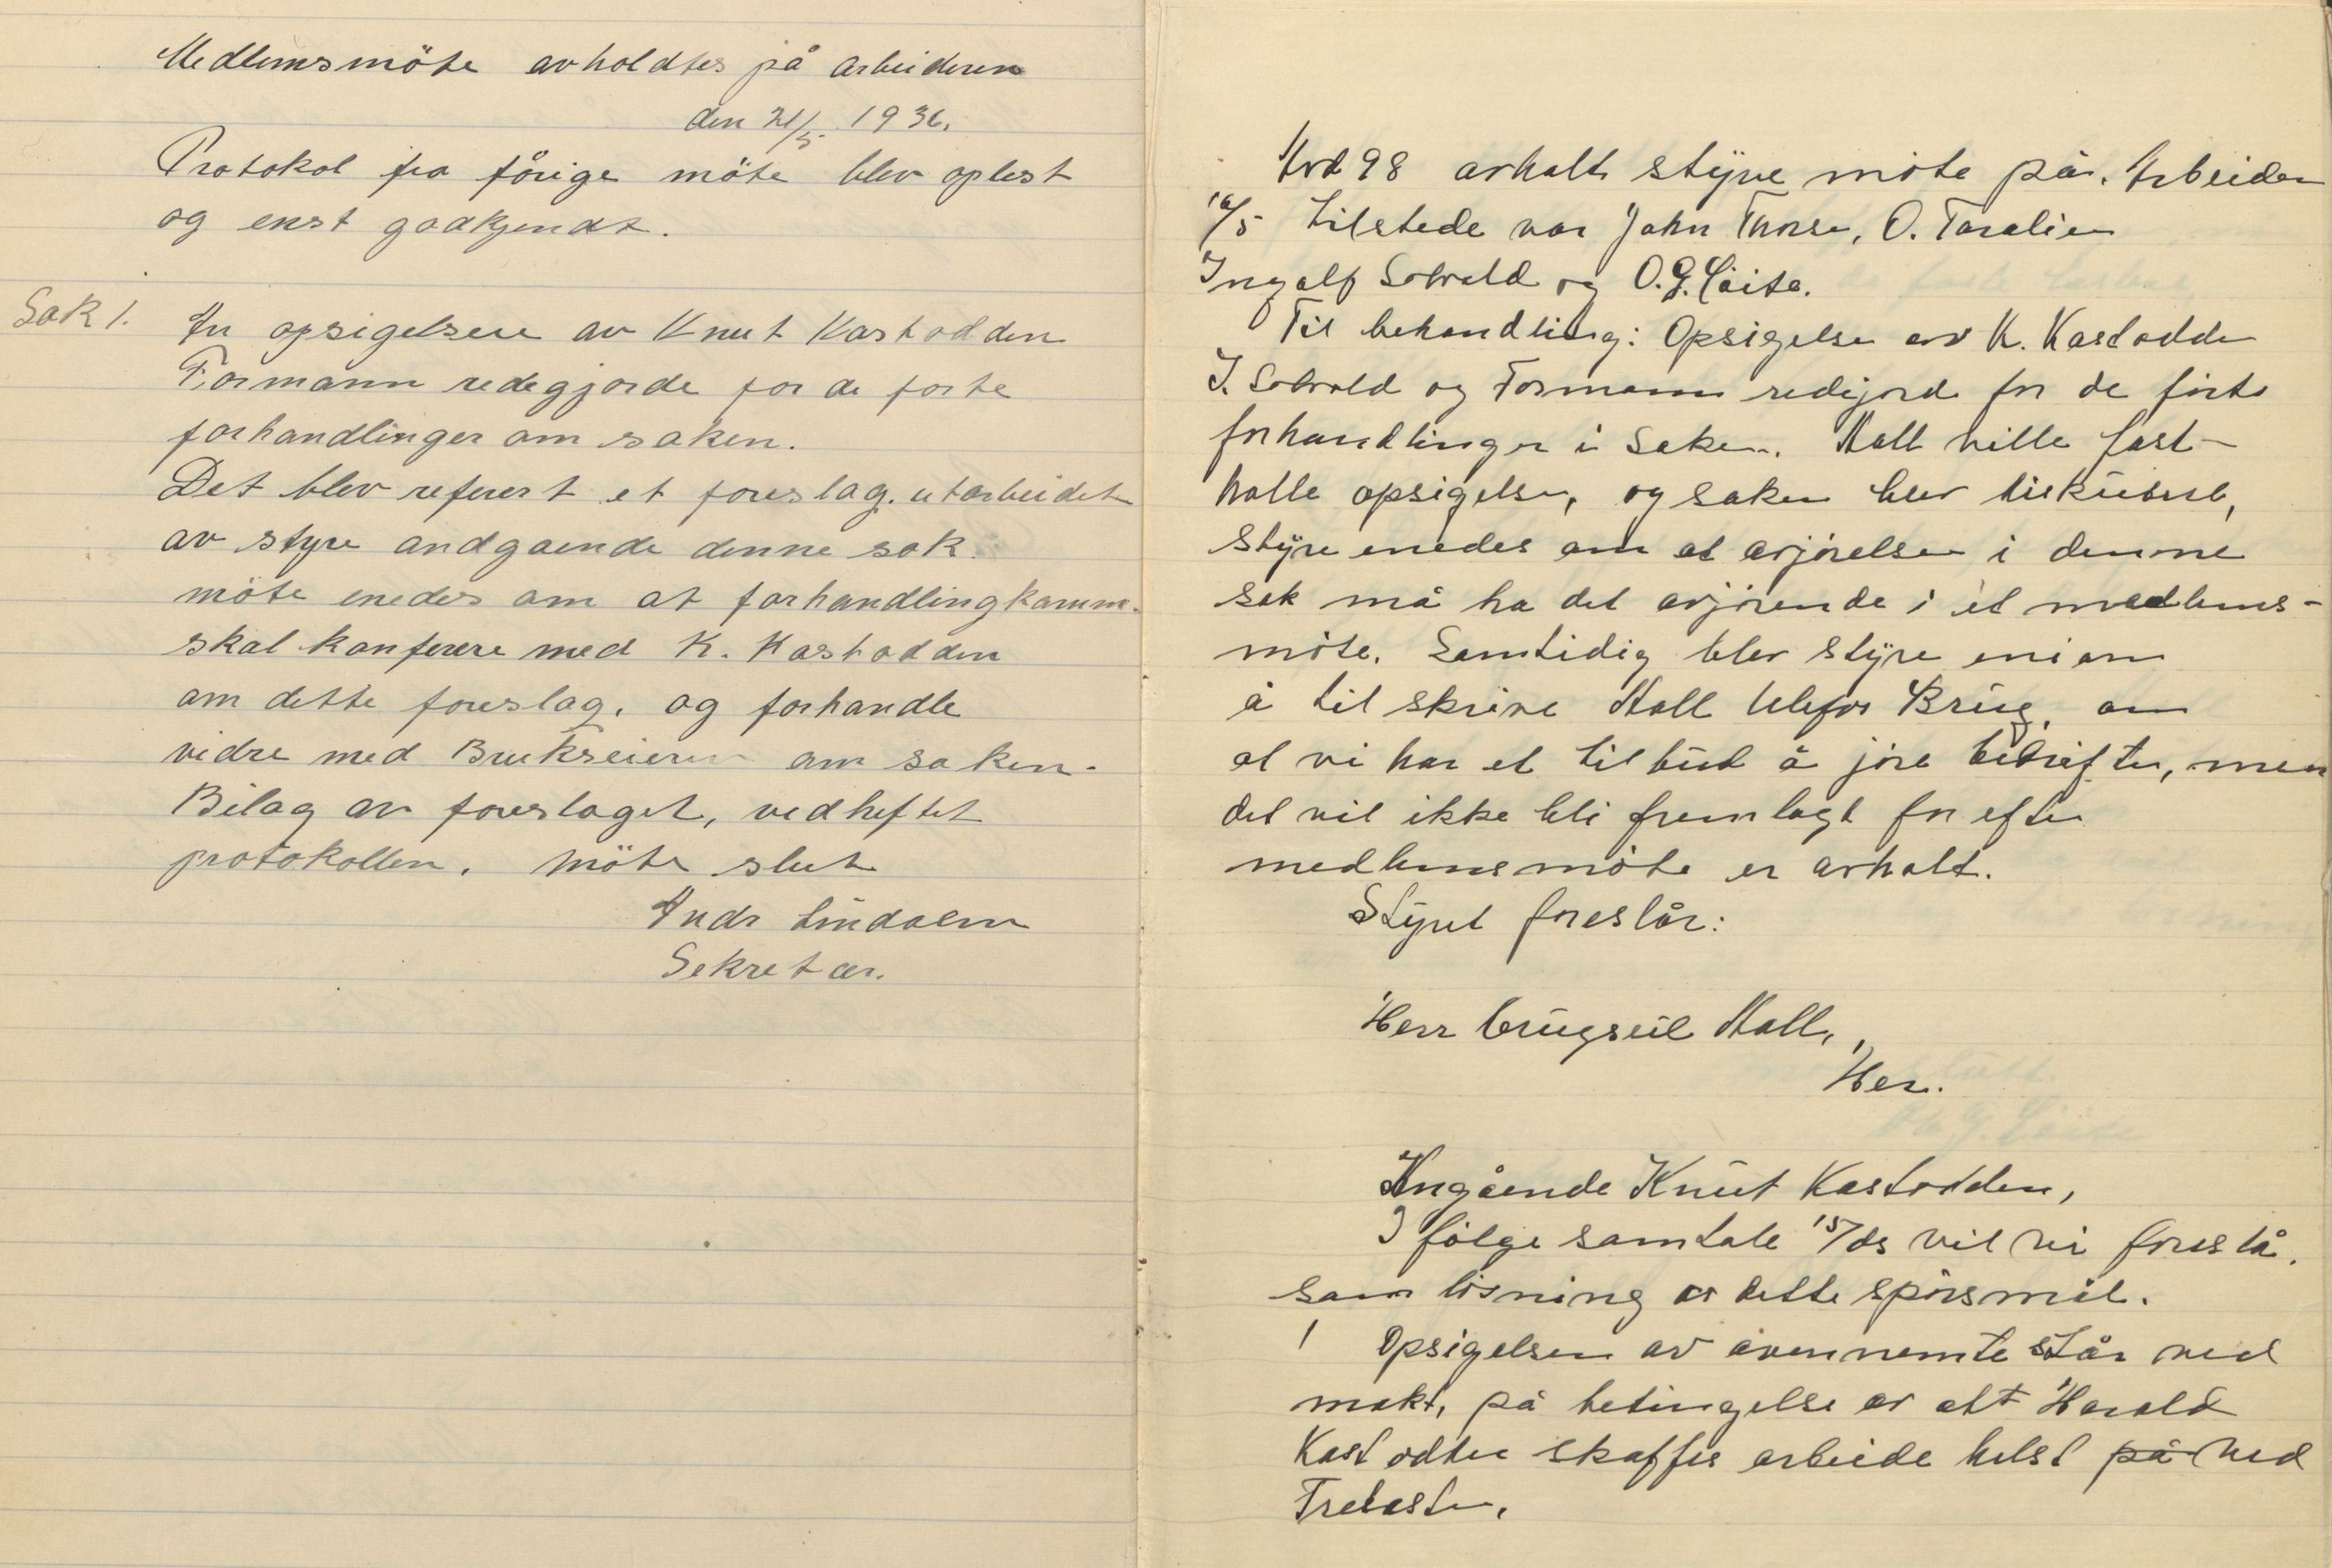 Medlemsmöte avholdtes på arbeideren
den 21/5 1936.
Protokol fra förige möte blev oplest
og enst godkjendt.
Sak 1. An opsigelsen av Knut Kastodden
Formann redegjorde for de forte
forhandlinger om saken.
Det blev referert et foreslag. utarbeidet
av styre andgaende denne sak.
möte enedes om at forhandlingkomm.
skal konferere med K. Kastodden
om dette foreslag, og forhandle
vidre med Brukseieren om saken.
Bilag av foreslaget, vedheftet
protokollen. möte slut
Andr Lindalen
Sekretær.
Avd 98 avholt styre möte på. Arbeider
16/5 tilstede var John Thorsen, O. Taralien
Ingolf Solvold og O. G. Löite.
Til behandling: Opsigelse av K. Kastodden
I. Solvold og Formann redijord for de förte
forhandlinger i Saken. Holl ville fast-
holle opsigelsen, og saken blev diskutert,
Styre enedes om at avjörelsen i denne
sak må ha det avjörende i et medlems-
möte. Samtidig blev styre eni om
å til skrive Holl Ulefos Brug, om
at vi har et tilbud å jöre bedriften, men
det vil ikke bli fremlagt for efter
medlemsmöte er avholt.
Styret foreslår:
Herr brugseil Holl,
Her.
Angående Knut Kastodden,
I fölge samtale 15/ds vil vi foreslå.
som lösning av dette spörsmål.
1 Opsigelsen av ovennemte står ved
makt, på betingelse av att Harald
Kastodden skaffes arbeide helst på ved
Trelasten.